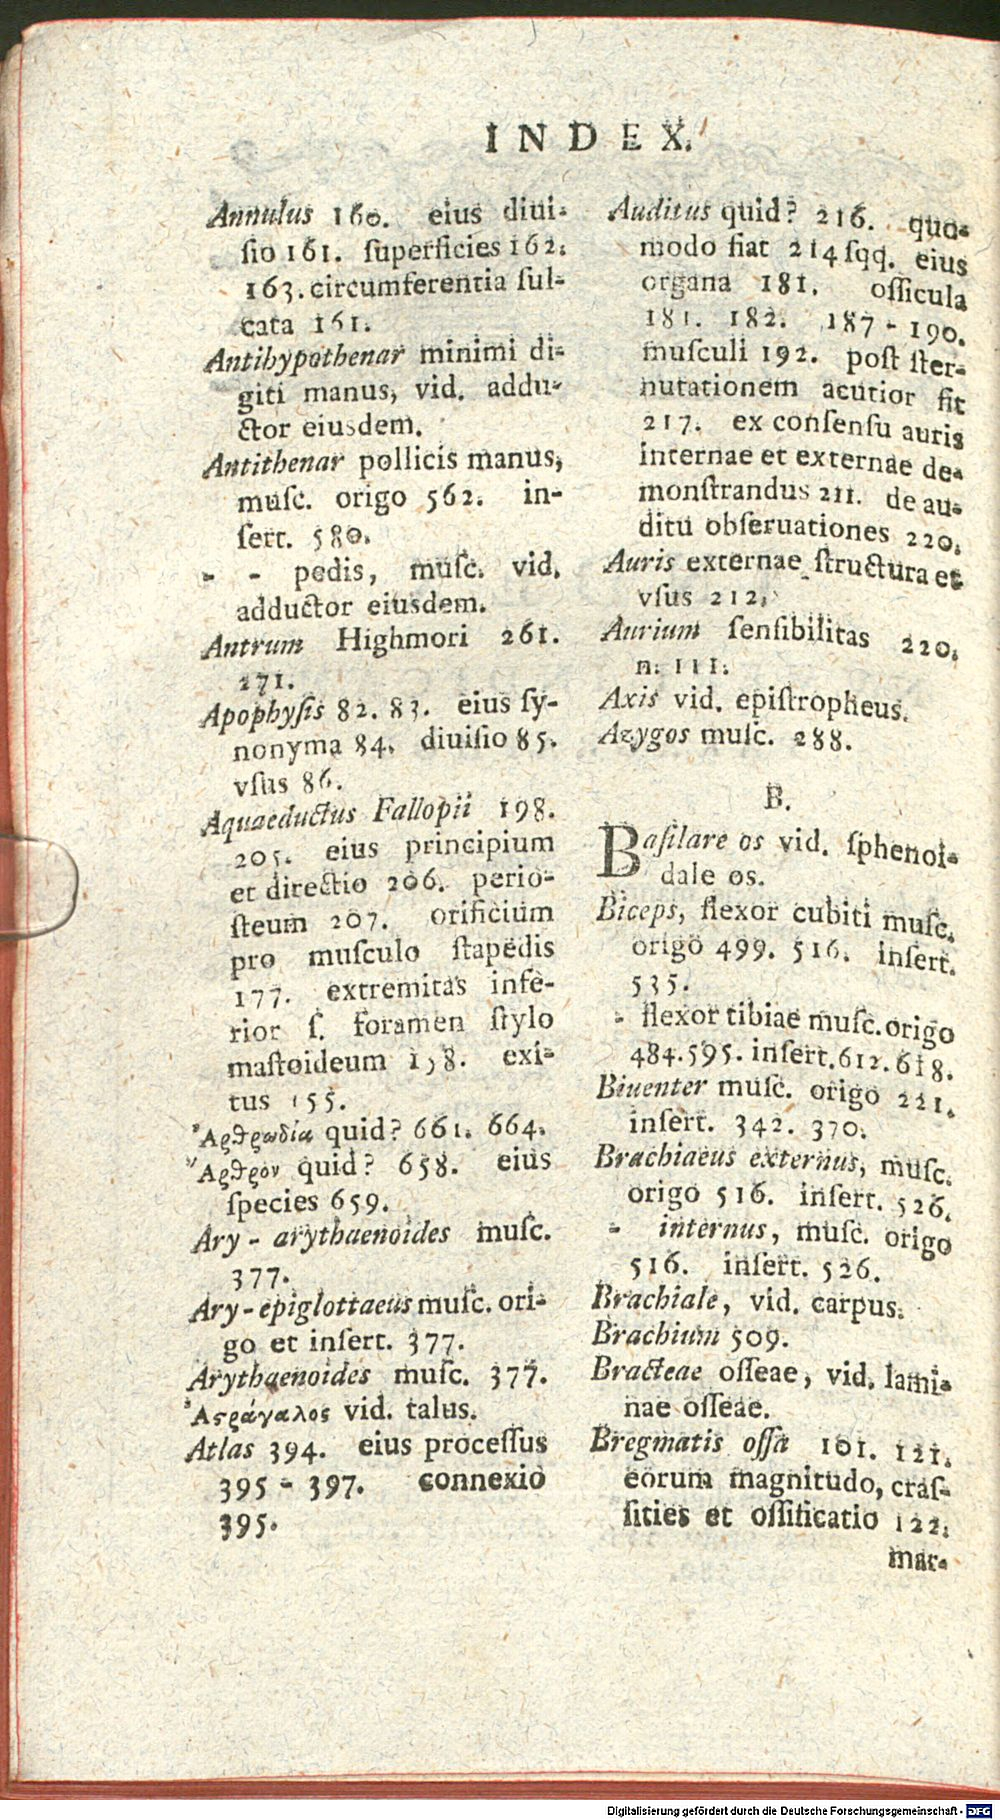 INDEX.
Annulus 160. eius diui-
sio 161. superficies 162.
163. circumferentia ſul-
cata 161.
Antihypothenar minimi di-
giti manus, vid. addu-
ctor eiusdem.
Antithenar pollicis manus,
muſc. origo 562. in-
ſert. 580.
- - pedis, muſc. vid.
adductor eiusdem.
Antrum Highmori 261.
271.
Apophyſis 82. 83. eius ſy-
nonyma 84. diuiſio 85.
vſus 86.
Aquaeductus Fallopii 198.
205. eius principium
et directio 206. perio-
ſteum 207. orificium
pro muſculo ſtapedis
177. extremitas infe-
rior ſ. foramen ſtylo
maſtoideum 158. exi-
tus 155.
Ἀρθρωδία quid? 661. 664.
Ἄρθρον quid? 658. eius
ſpecies 659.
Ary - arythaenoides muſc.
377.
Ary-epiglottaeus muſc. ori-
go et inſert. 377.
Arythaenoides muſc. 377.
Ἀϛράγαλος vid. talus.
Atlas 394. eius proceſſus
395 - 397. connexio
395.
Auditus quid? 216. quo-
modo fiat 214 ſqq. eius
organa 181. oſſicula
181. 182. 187 - 190.
muſculi 192. poſt ſter-
nutationem acutior fit
217. ex conſenſu auris
internae et externae de-
monſtrandus 211. de au-
ditu obſeruationes 220.
Auris externae ſtructura et
vſus 212.
Aurium ſenſibilitas 220.
n. III.
Axis vid. epiſtropheus.
Azygos muſc. 288.
B.
Baſilare os vid. ſphenoi-
dale os.
Biceps, flexor cubiti muſc.
origo 499. 516. inſert.
535.
- flexor tibiae muſc. origo
484. 595. inſert. 612. 618.
Biuenter muſc. origo 221.
inſert. 342. 370.
Brachiaeus externus, muſc.
origo 516. inſert. 526.
- internus, muſc. origo
516. inſert. 526.
Brachiale, vid. carpus.
Brachium 509.
Bracteae oſſeae, vid. lami-
nae oſſeae.
Bregmatis oſſa 101. 121.
eorum magnitudo, craſ-
ſities et oſſificatio 122.
mar-
Digitalisierung gefördert durch die Deutsche Forschungsgemeinschaft - DFG